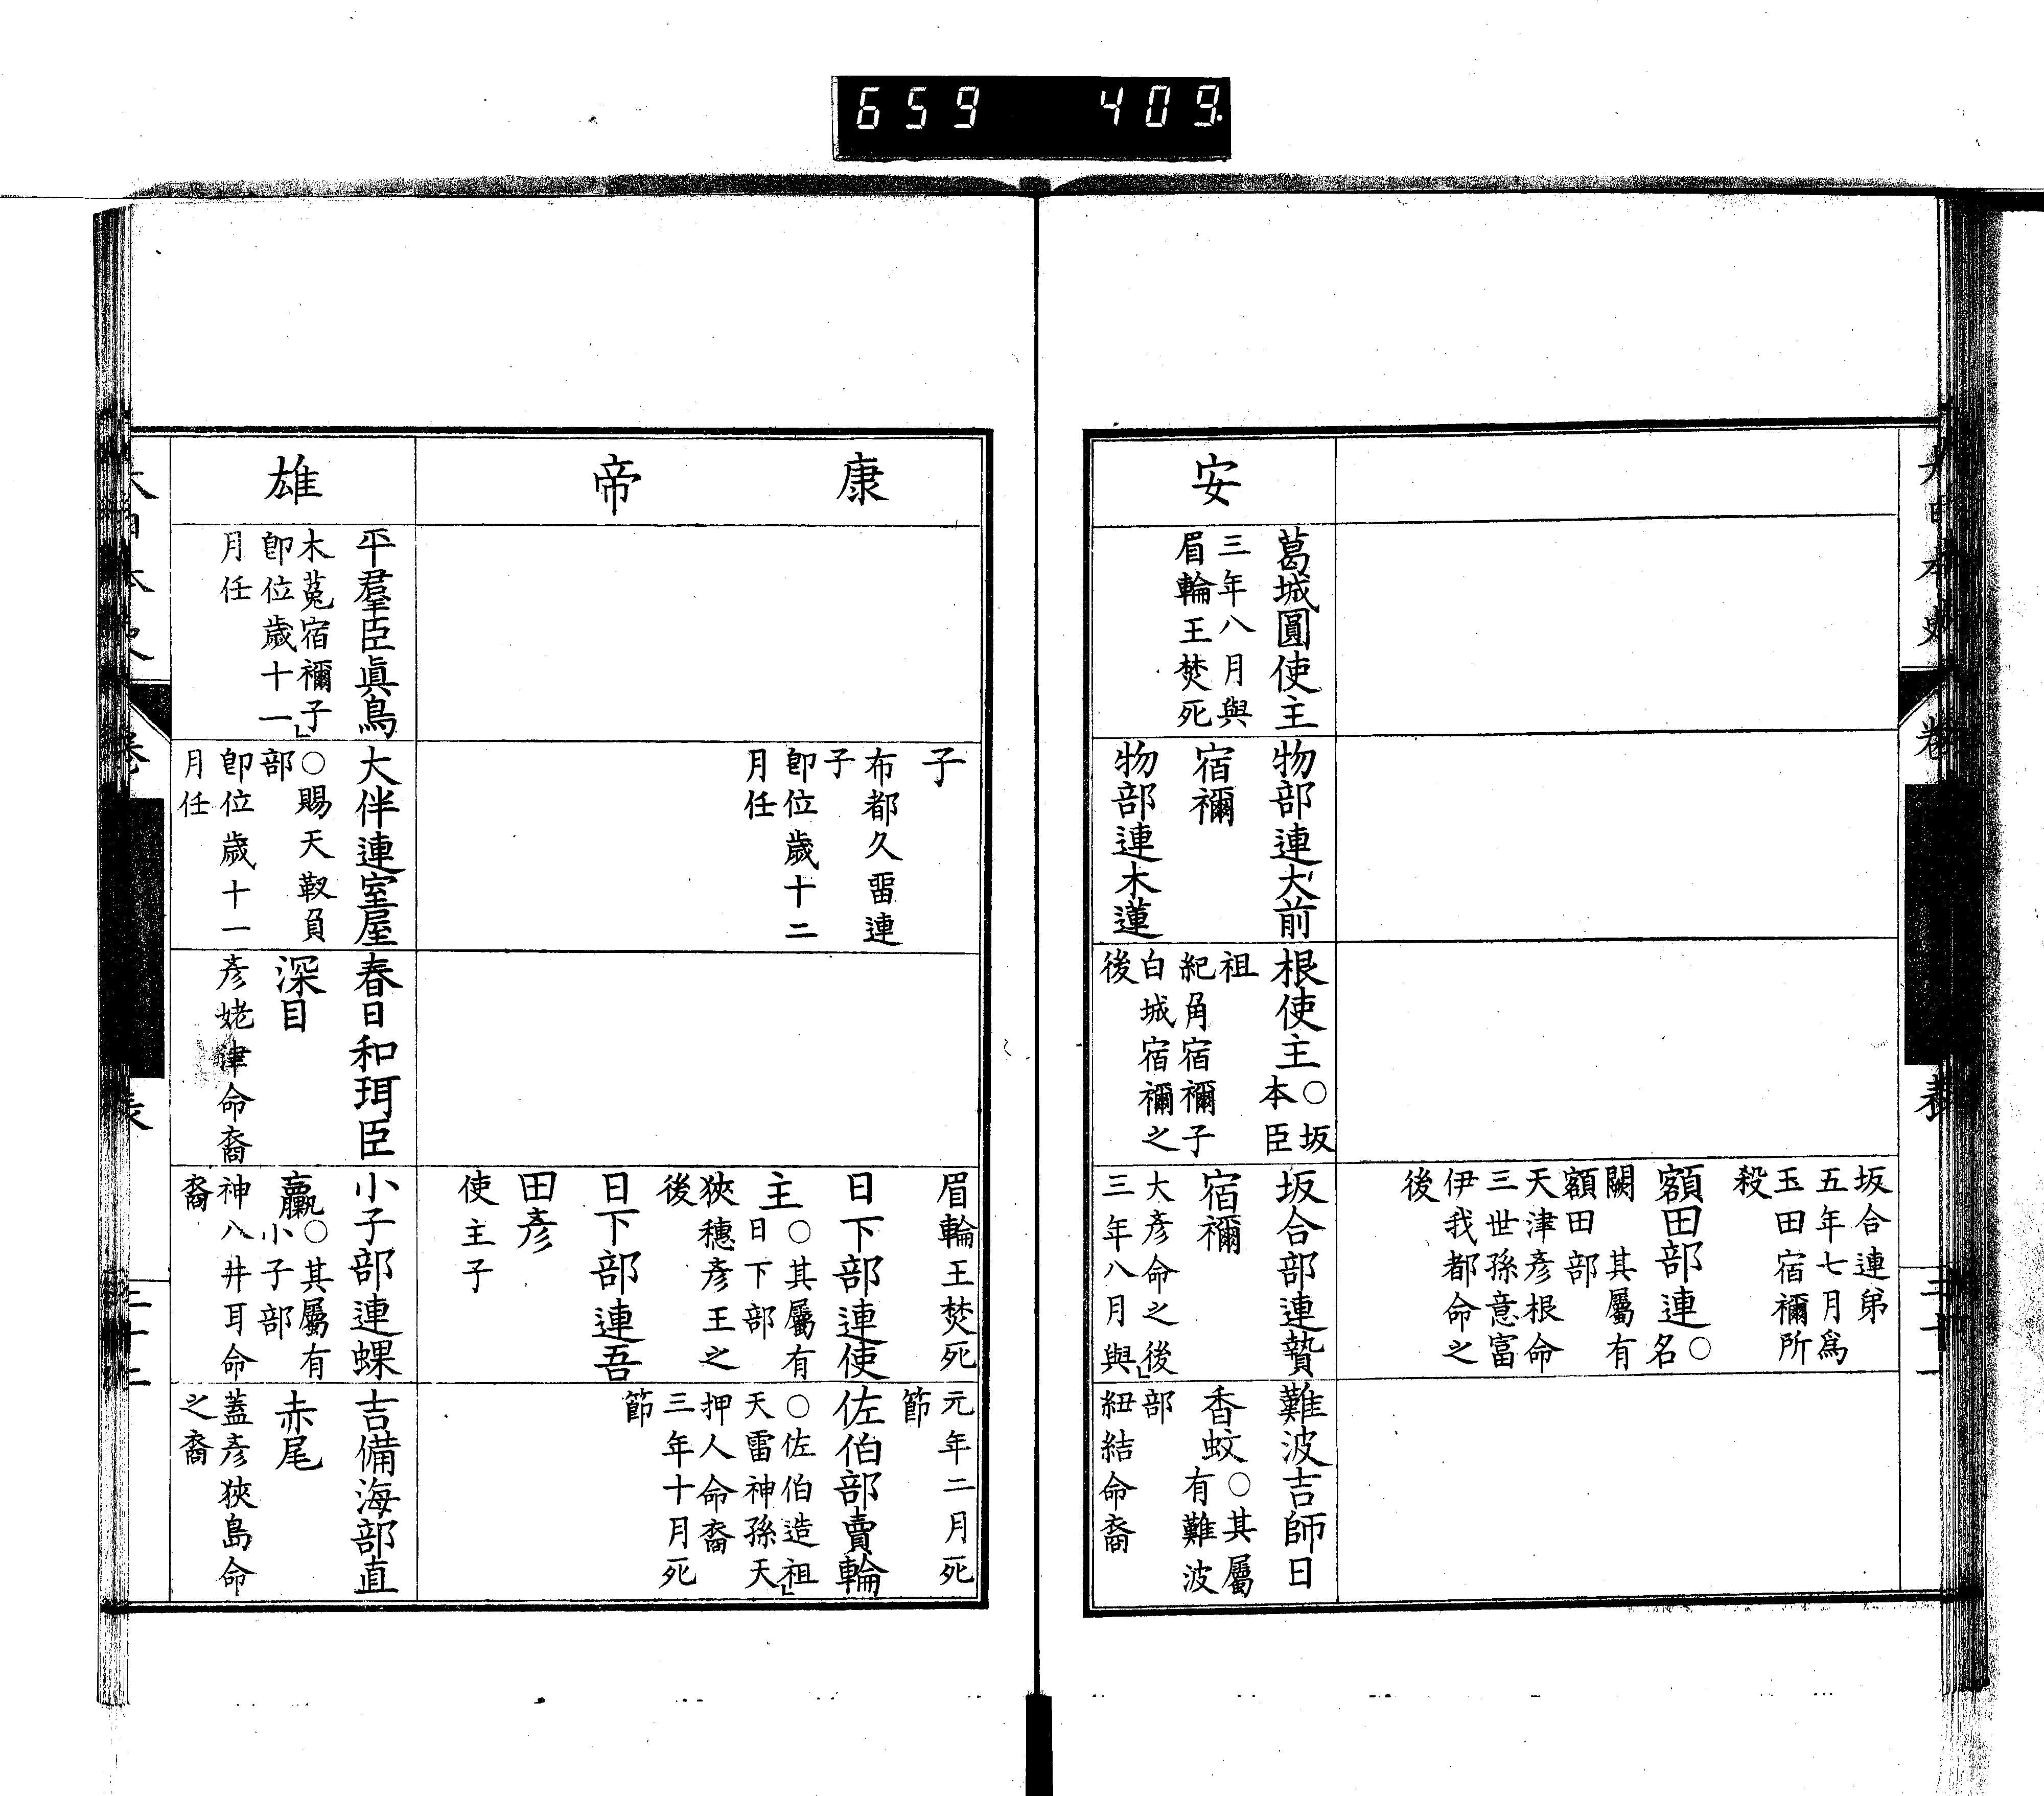 659 409
坂合連弟
五年七月爲
玉田宿禰所
殺
額田部連名○
闕　其屬有
額田部
天津彥根命
三世孫意富
伊我都命之
後
安
葛城圓使主
三年八月與
眉輪王焚死
物部連大前
宿禰
物部連木蓮
根使主○坂
本臣
祖
紀角宿禰子
白城宿禰之
後
坂合部連贄
宿禰
大彥命之後
三年八月與
難波吉師日
香蚊○其屬
有難波
部
紐結命裔
康
帝
子
布都久留連
子
卽位歲十二
月任
眉輪王焚死
日下部連使
主○其屬有
日下部
狹穗彥王之
後
日下部連吾
田彥
使主子
元年二月死
節
佐伯部賣輪
○佐伯造祖
天雷神孫天
押人命裔
三年十月死
節
雄
平羣臣眞鳥
木菟宿禰子
卽位歲十一
月任
大伴連室屋
○賜天靱負
部
卽位歲十一
月任
春日和珥臣
深目
彥姥津命裔
小子部連蜾
蠃○其屬有
小子部
神八井耳命
裔
吉備海部直
赤尾
蓋彥狹島命
之裔